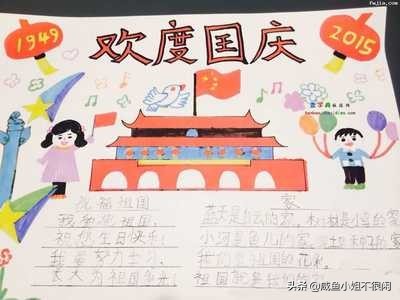 Fwjia.com
1949
欢度国庆
2015
祝福祖国
我的祖国,
祝您生日快乐!
我要努力学习,
长大为祖国争光!
家
蓝天是白云的家,树林是小鸟的家
小河是鱼儿的家,泥土是种子的家
我们是祖国的花朵,
祖国就是我们的家
头条 @咸鱼小姐不很闲